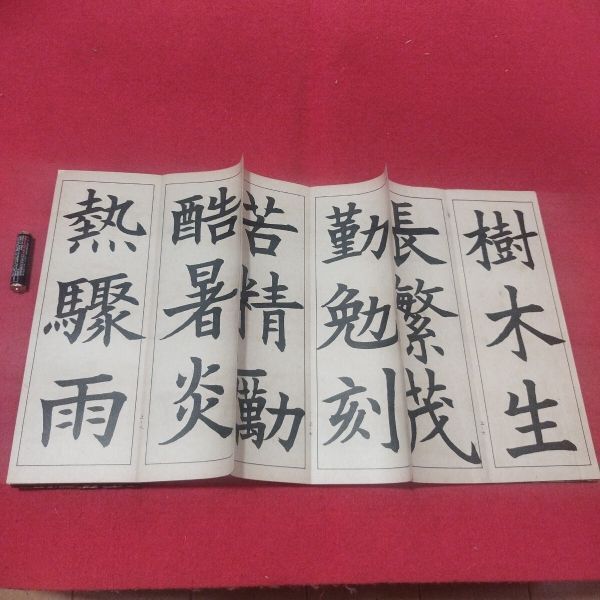 樹木生
長繁茂
勤勉刻
苦精勵
酷暑炎
熱驟雨